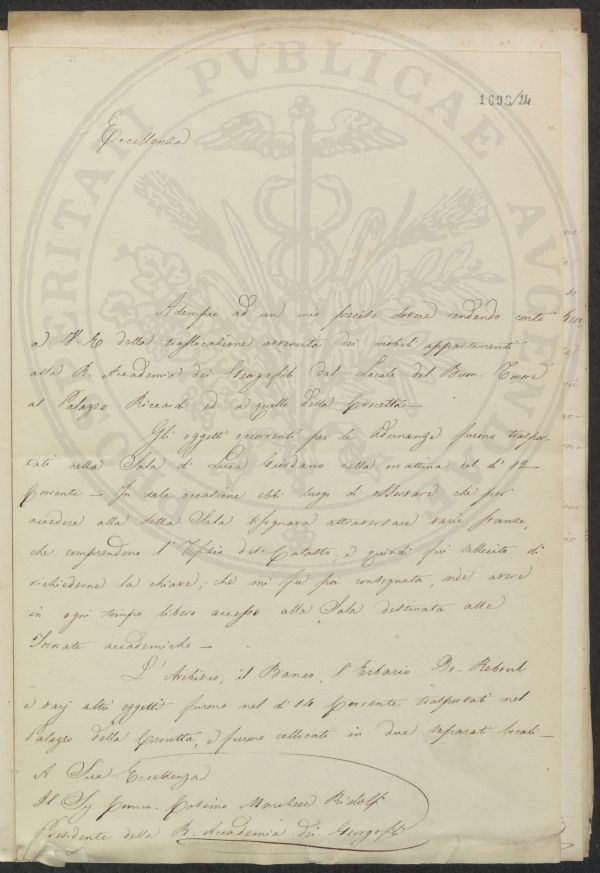 1696/24
Eccellenza
Adempio ad un mio preciso dovere rendendo conto
a V. E. della traslocazione avvenuta dei mobili appartenenti
alla R. Accademia dei Georgofili dal Locale del Buon-Umore
al Palazzo Riccardi ed a quello della Crocetta —
Gli oggetti occorrenti per le Adunanze furono traspor-
tati nella Sala di Luca Giordano nella mattina del dì 12
Corrente — In tale occasione ebbi luogo di osservare che per
accedere alla detta Sala bisognava attraversare varie stanze,
che comprendono l'Ufizio del Catasto, e quindi fui sollecito di
richiederne la chiave, che mi fu poi consegnata, onde avere
in ogni tempo libero accesso alla Sala destinata alle
Tornate accademiche —
L'Archivio, il Banco, l'Erbario De-Reboul,
e varj altri oggetti furono nel dì 14 Corrente trasportati nel
Palazzo della Crocetta, e furono collocati in due separati locali —
A Sua Eccellenza
Il Sig Comm. Cosimo Marchese Ridolfi
Presidente della R. Accademia dei Georgofili
PVBLICAE